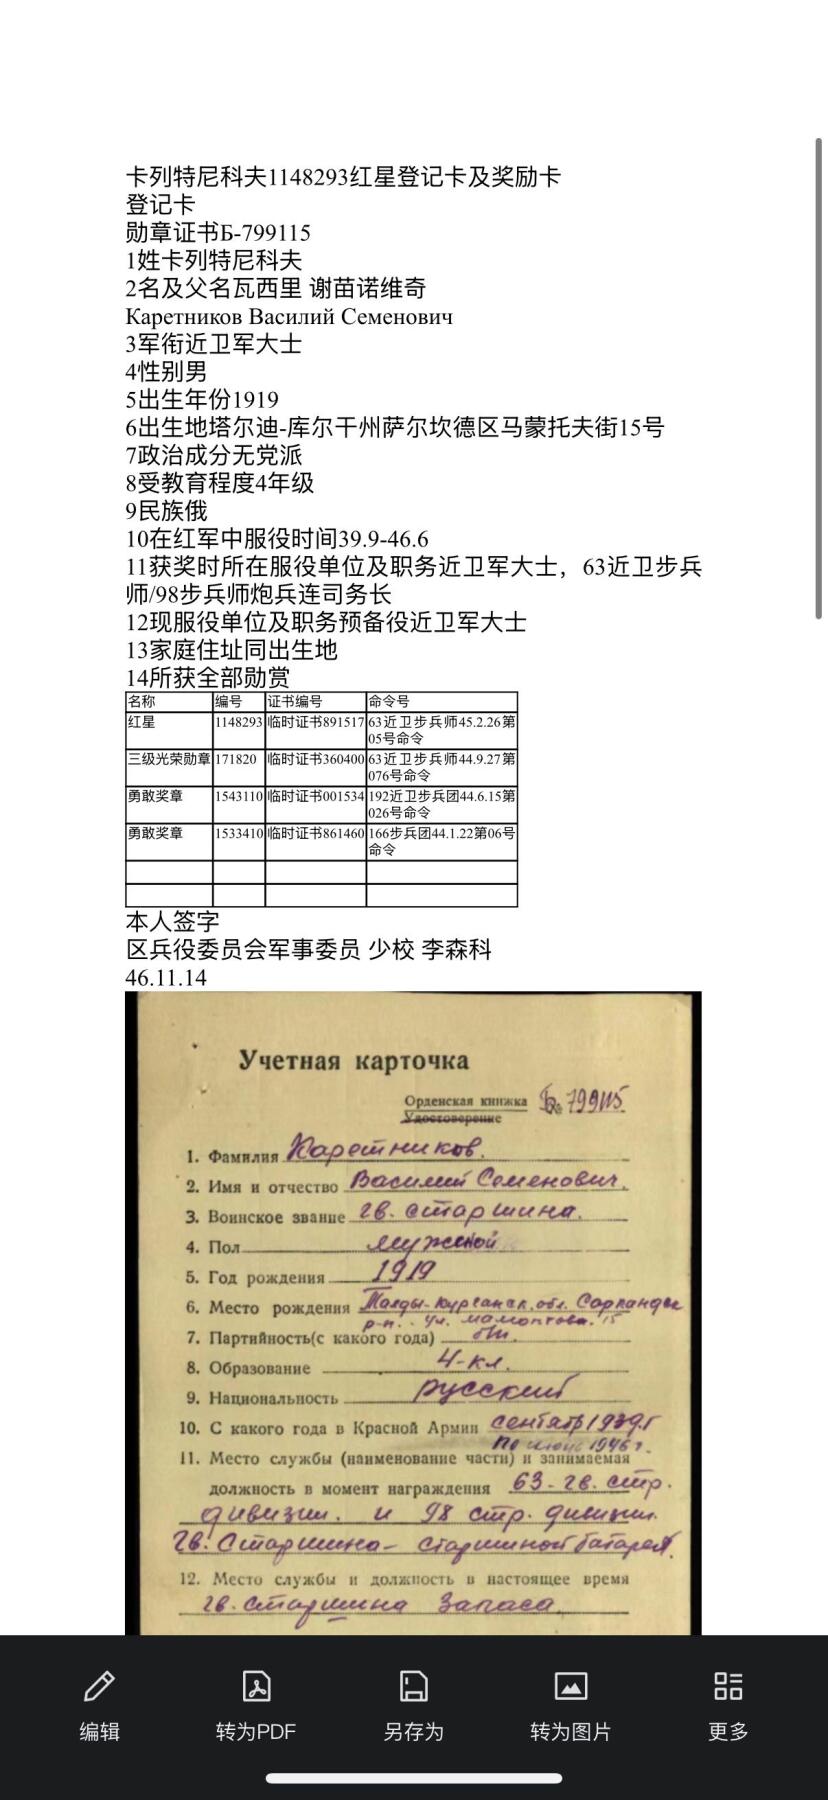 卡列特尼科夫1148293红星登记卡及奖励卡
登记卡
勋章证书Б-799115
1姓卡列特尼科夫
2名及父名瓦西里 谢苗诺维奇
Каретников Василий Семенович
3军衔近卫军大士
4性别男
5出生年份1919
6出生地塔尔迪-库尔干州萨尔坎德区马蒙托夫街15号
7政治成分无党派
8受教育程度4年级
9民族俄
10在红军中服役时间39.9-46.6
11获奖时所在服役单位及职务近卫军大士，63近卫步兵
师/98步兵师炮兵连司务长
12现服役单位及职务预备役近卫军大士
13家庭住址同出生地
14所获全部勋赏
名称 编号 证书编号 命令号
红星 1148293 临时证书891517 63近卫步兵师45.2.26第
05号命令
三级光荣勋章 171820 临时证书360400 63近卫步兵师44.9.27第
076号命令
勇敢奖章 1543110 临时证书001534 192近卫步兵团44.6.15第
026号命令
勇敢奖章 1533410 临时证书861460 166步兵团44.1.22第06号
命令
本人签字
区兵役委员会军事委员 少校 李森科
46.11.14
Учетная карточка
Орденская книжка Б № 799115
Удостоверение
1. Фамилия Каретников.
2. Имя и отчество Василий Семенович.
3. Воинское звание гв. старшина.
4. Пол мужской
5. Год рождения 1919
6. Место рождения Талды-Курганск. обл. Сарканд
р-н. ул. Мамонтова. 15
7. Партийность(с какого года) б/п.
8. Образование 4-кл.
9. Национальность русский
10. С какого года в Красной Армии сентябр 1939 г
по июнь 1946 г.
11. Место службы (наименование части) и занимаемая
должность в момент награждения 63-гв. стр.
дивизии. и 98 стр. дивизии.
гв. Старшина- старшиной батареи.
12. Место службы и должность в настоящее время
гв. старшина запаса.
编辑 转为PDF 另存为 转为图片 更多